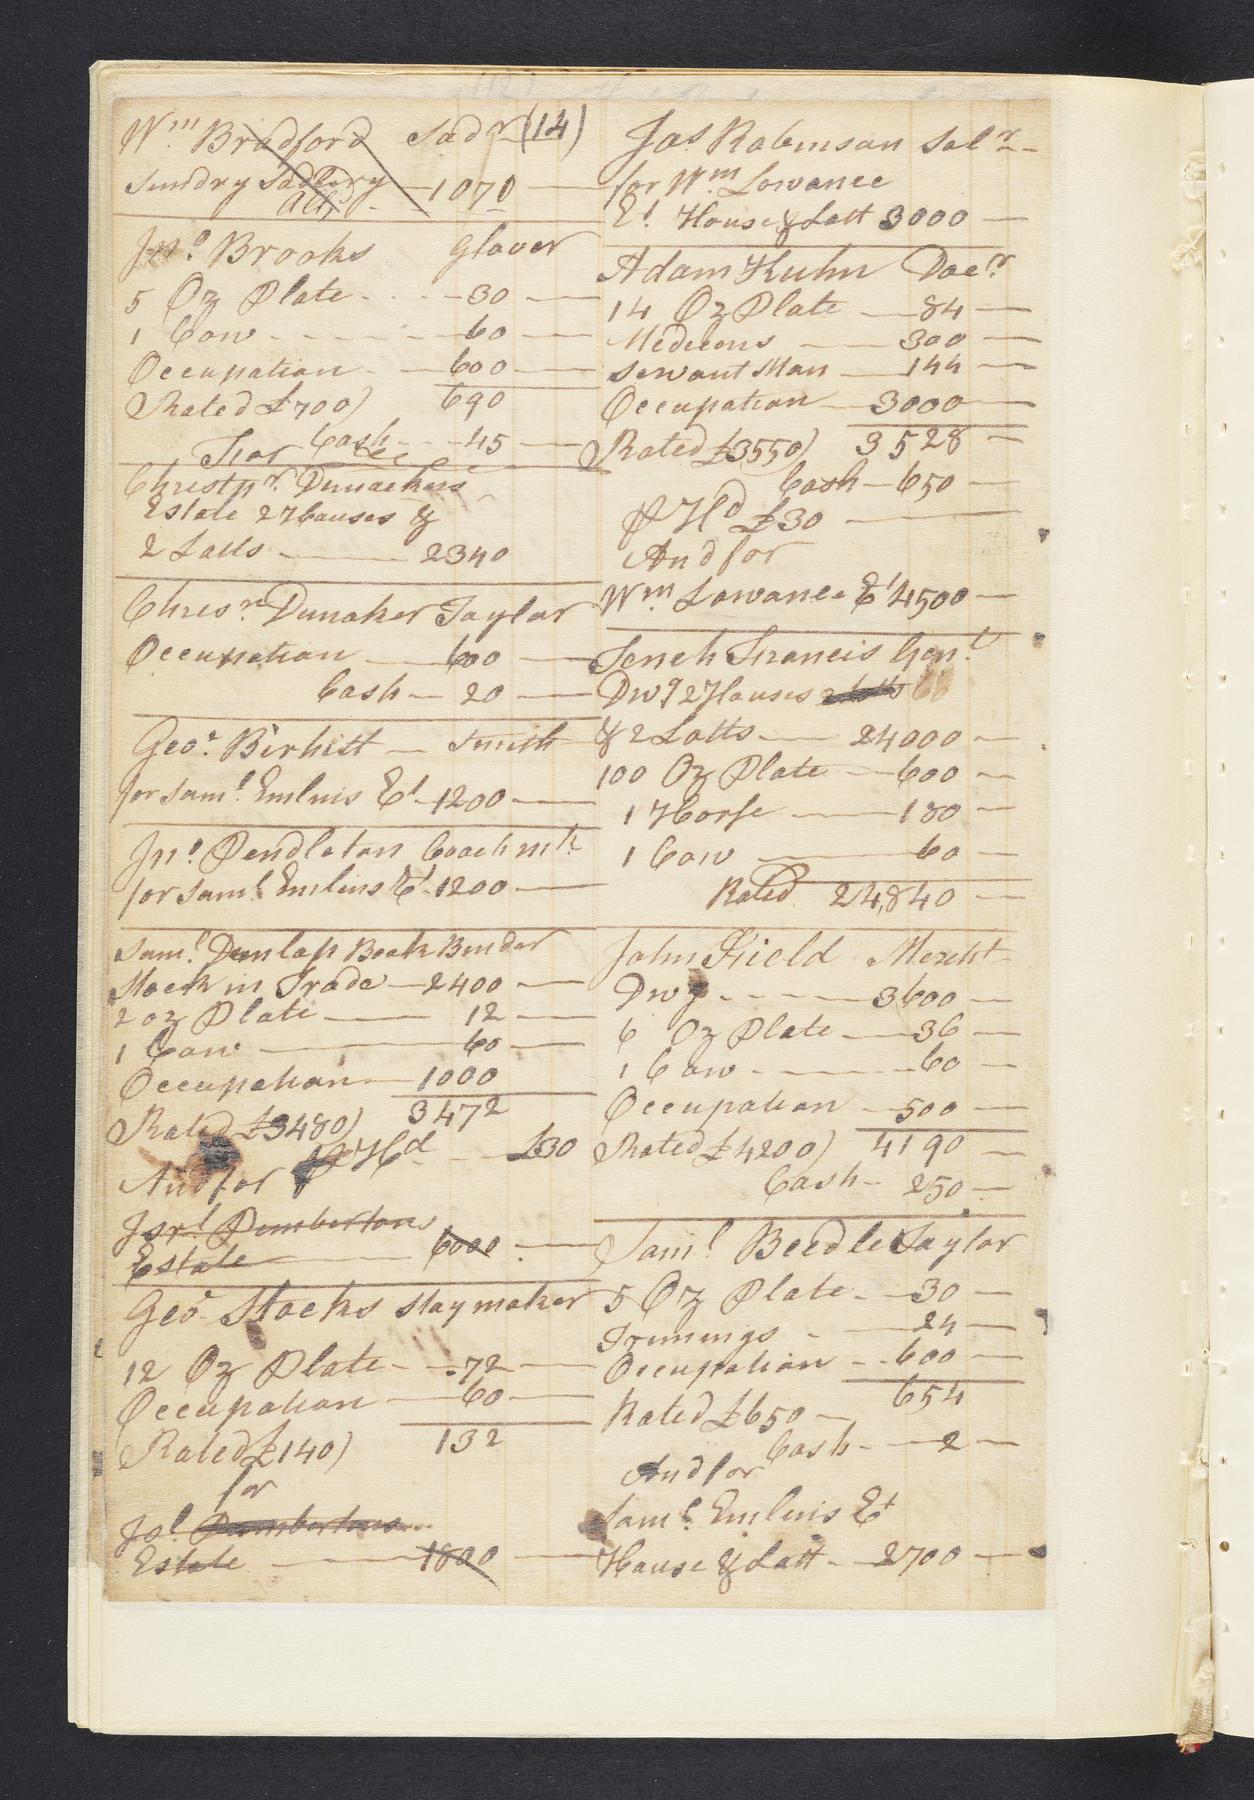 Wm. Bradford Sadr (14)
Sundry Sadlery
1070
Jno. Brooks Glover
5 Oz Plate 30
1 Cow 60
Occupation 600
Rated £700) 690
Cash 45
For
Christpr. Dunackers
Estate 2 Houses &
2 Lotts 2340
Chrisr. Dunaker Taylor
Occupation 600
Cash 20
Geo. Birkitt Smith
for Saml. Emlins Et. 1200
Jno. Pendleton Coachmkr
for Saml. Emlins Et. 1200
Saml. Dunlap Book Binder
Stock in Trade 2400
2 oz Plate 12
1 Cow 60
Occupation 1000
Rated £3480) 3472
P Hd £30
And for
Isrl. Pemberton
Estate 6000
Geo. Stocks Staymaker
12 Oz Plate 72
Occupation 60
Rated £140) 132
for
Jsl. Pembertons
Estate 1800
Jas. Robinson Salr.
for Wm. Lowance
Et. House & Lott 3000
Adam Kuhn Docr.
14 Oz Plate 84
Medicens 300
Servant Man 144
Occupation 3000
Rated £3550) 3528
Cash 650
P Hd £30
And for
Wm. Lowance Et. 4500
Tench Francis Gent.
Dwg 2 Houses
& 2 Lotts 24000
100 Oz Plate 600
1 Horse 180
1 Cow 60
Rated 24,840
John Field Mercht
Dwg 3600
6 Oz Plate 36
1 Cow 60
Occupation 500
Rated £4200) 4190
Cash 250
Saml. Beedle Taylor
5 Oz Plate 30
Trimings 24
Occupation 600
654
Rated £650
Cash 2
And for
Saml. Emlins Et
House & Lott 2700